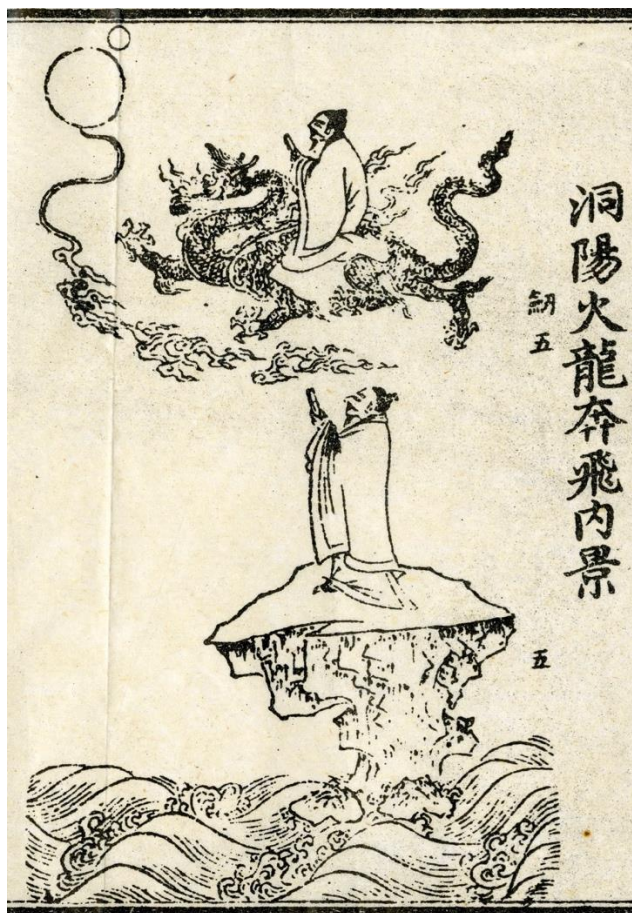 洞陽火龍奔飛内景
五
五